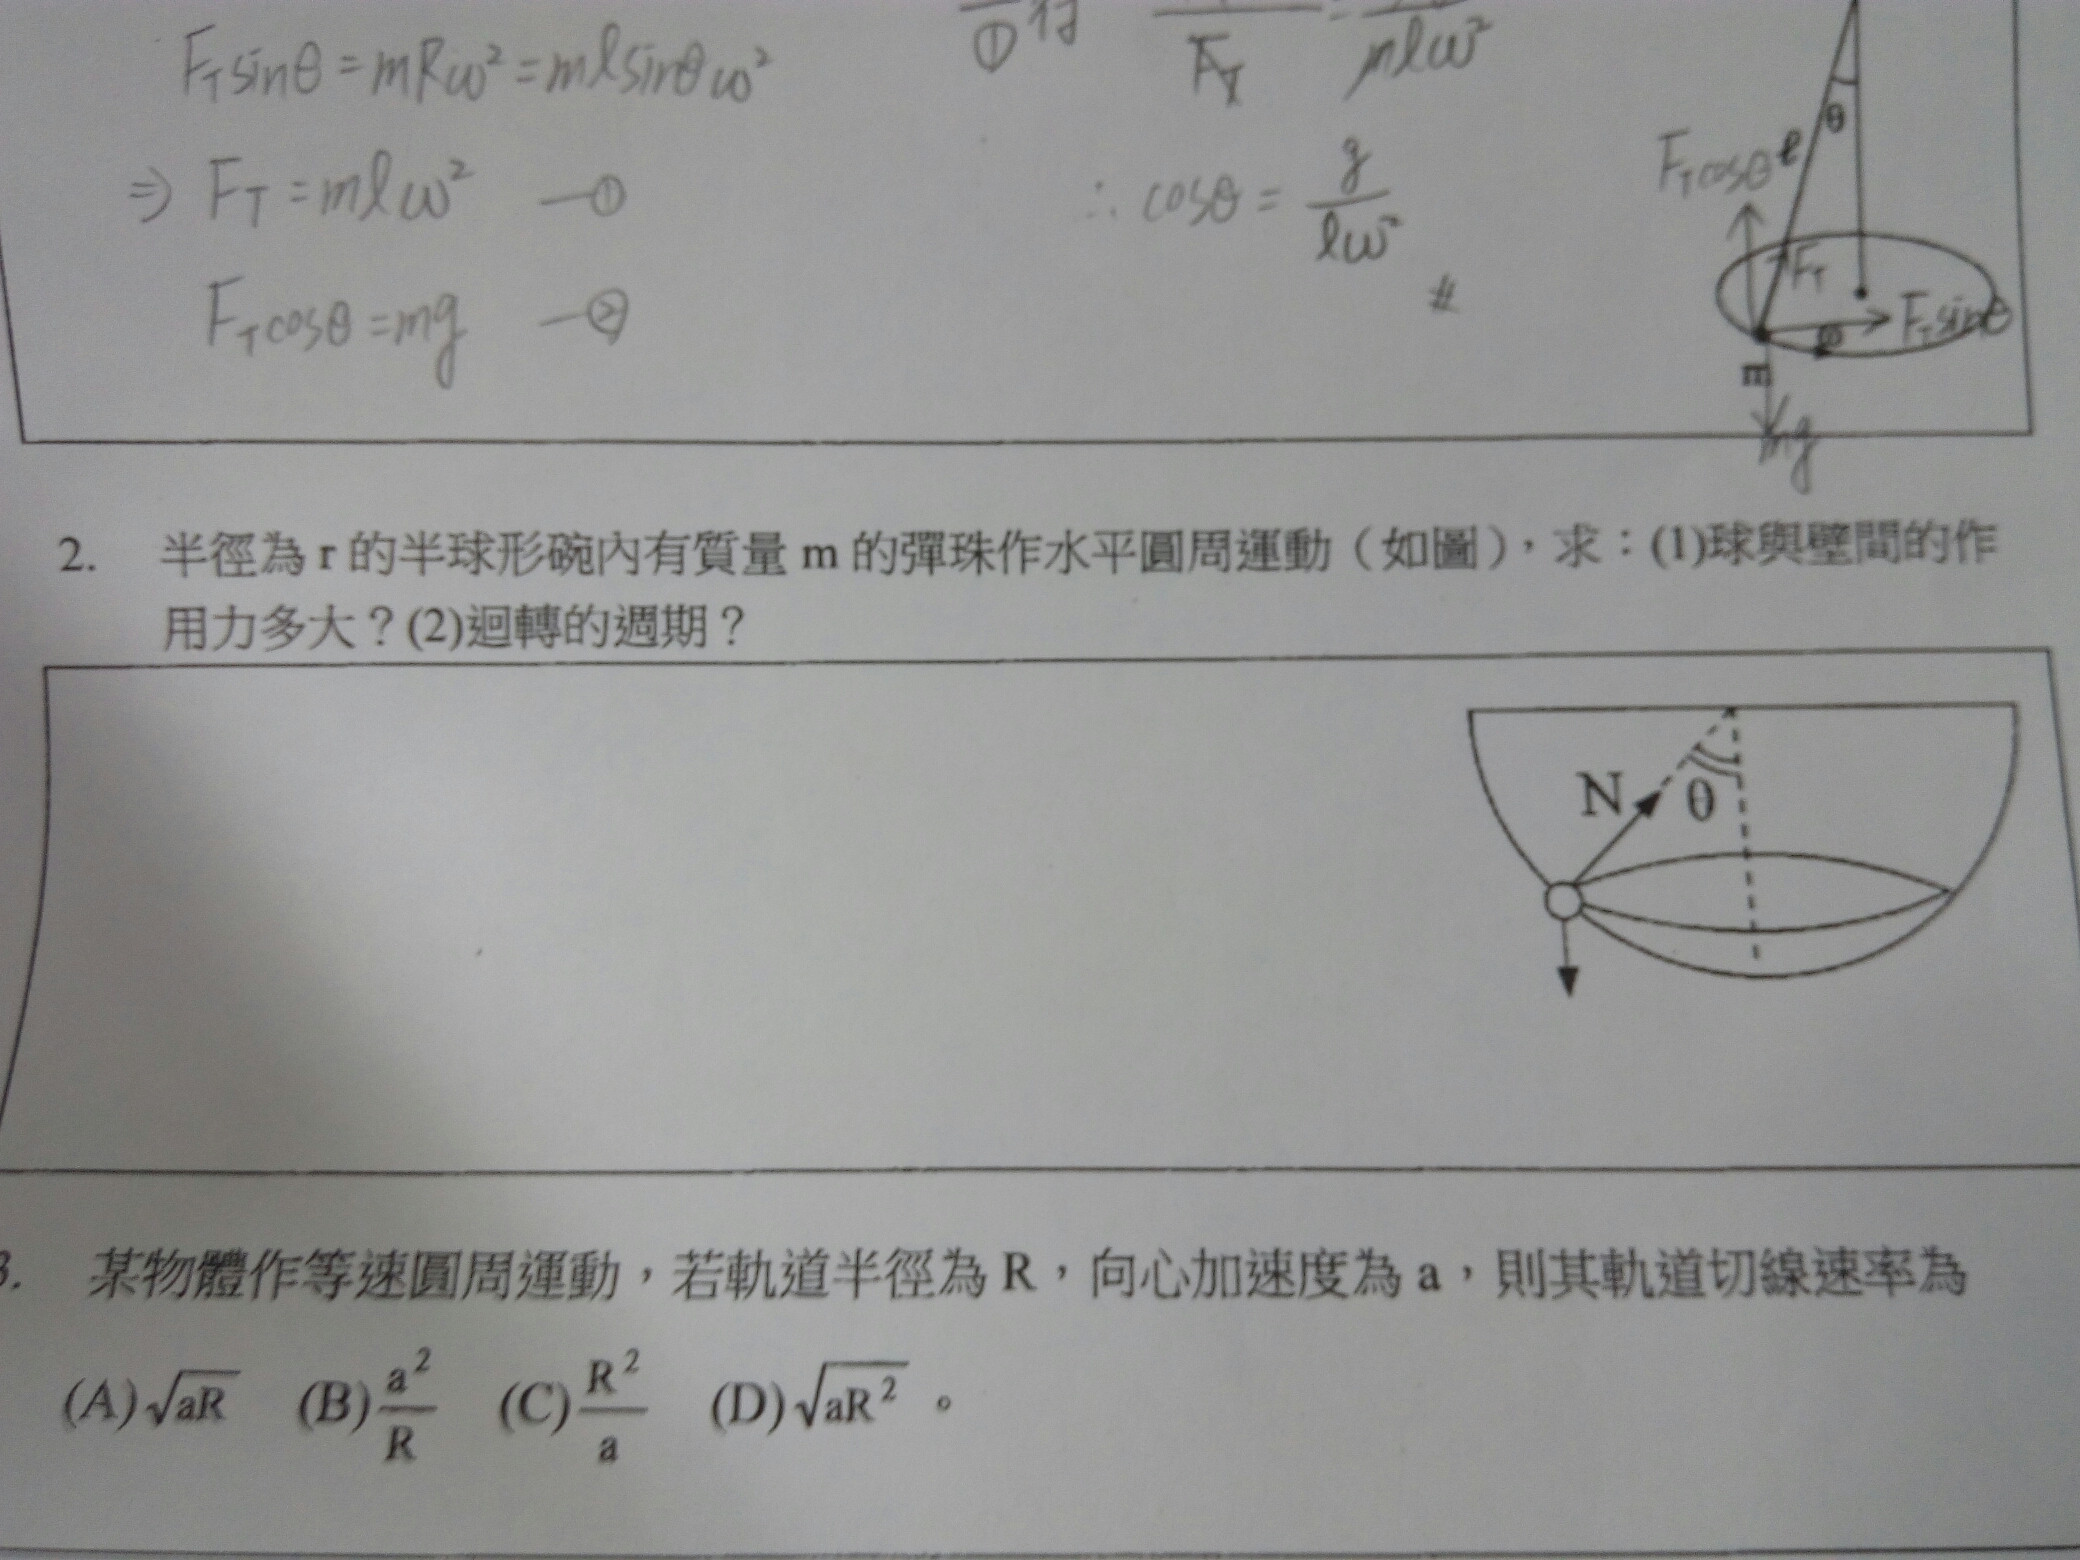 F_T sinθ = mRω² = mℓsinθω²
① 得 F_T mℓω²
⇒ F_T = mℓω² —①
∴ cosθ = g/ℓω²
F_T cosθ = mg —②
#
F_T cosθ ℓ θ
F_T F_T sinθ
m
mg
2. 半徑為 r 的半球形碗內有質量 m 的彈珠作水平圓周運動（如圖），求：(1)球與壁間的作
用力多大？(2)迴轉的週期？
N θ
3. 某物體作等速圓周運動，若軌道半徑為 R，向心加速度為 a，則其軌道切線速率為
(A)√aR (B)a²/R (C)R²/a (D)√aR² 。